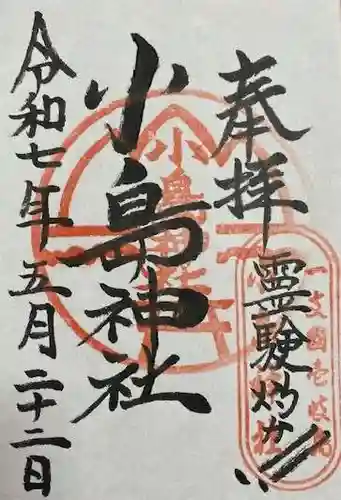 奉拝
霊験灼か
小島神社
令和七年五月二十二日
小島神社
一支國壱岐